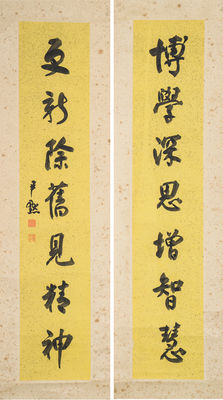 博學深思增智慧
更新除舊見精神
尹默